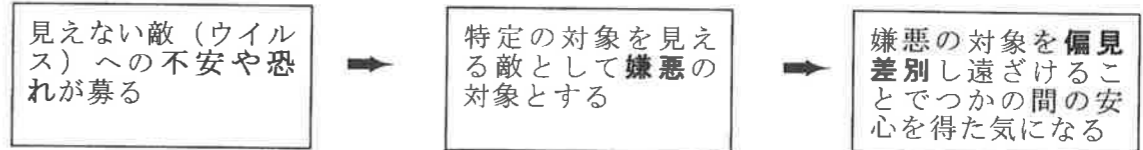 見えない敵（ウイル
ス）への不安や恐
れが募る
特定の対象を見え
る敵として嫌悪の
対象とする
嫌悪の対象を偏見
差別し遠ざけるこ
とでつかの間の安
心を得た気になる